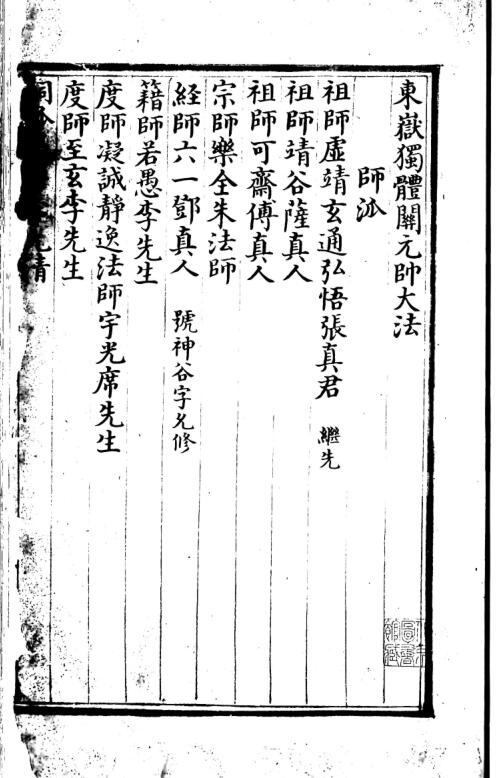 東嶽獨體關元帥大法
師泒
祖師虛靖玄通弘悟張真君 繼先
祖師靖谷薩真人
祖師可齋傅真人
宗師樂全朱法師
経師六一鄧真人 號神谷字允修
籍師若愚李先生
度師凝誠靜逸法師宇光席先生
度師至玄李先生